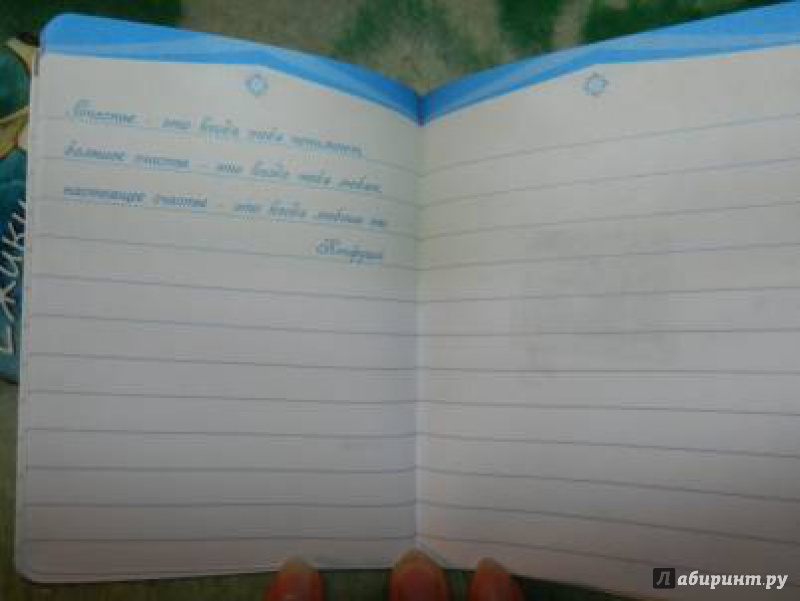 Счастье - это когда тебя понимают,
большое счастье - это когда тебя любят,
настоящее счастье - это когда любишь ты
Конфуций
Лабиринт.ру